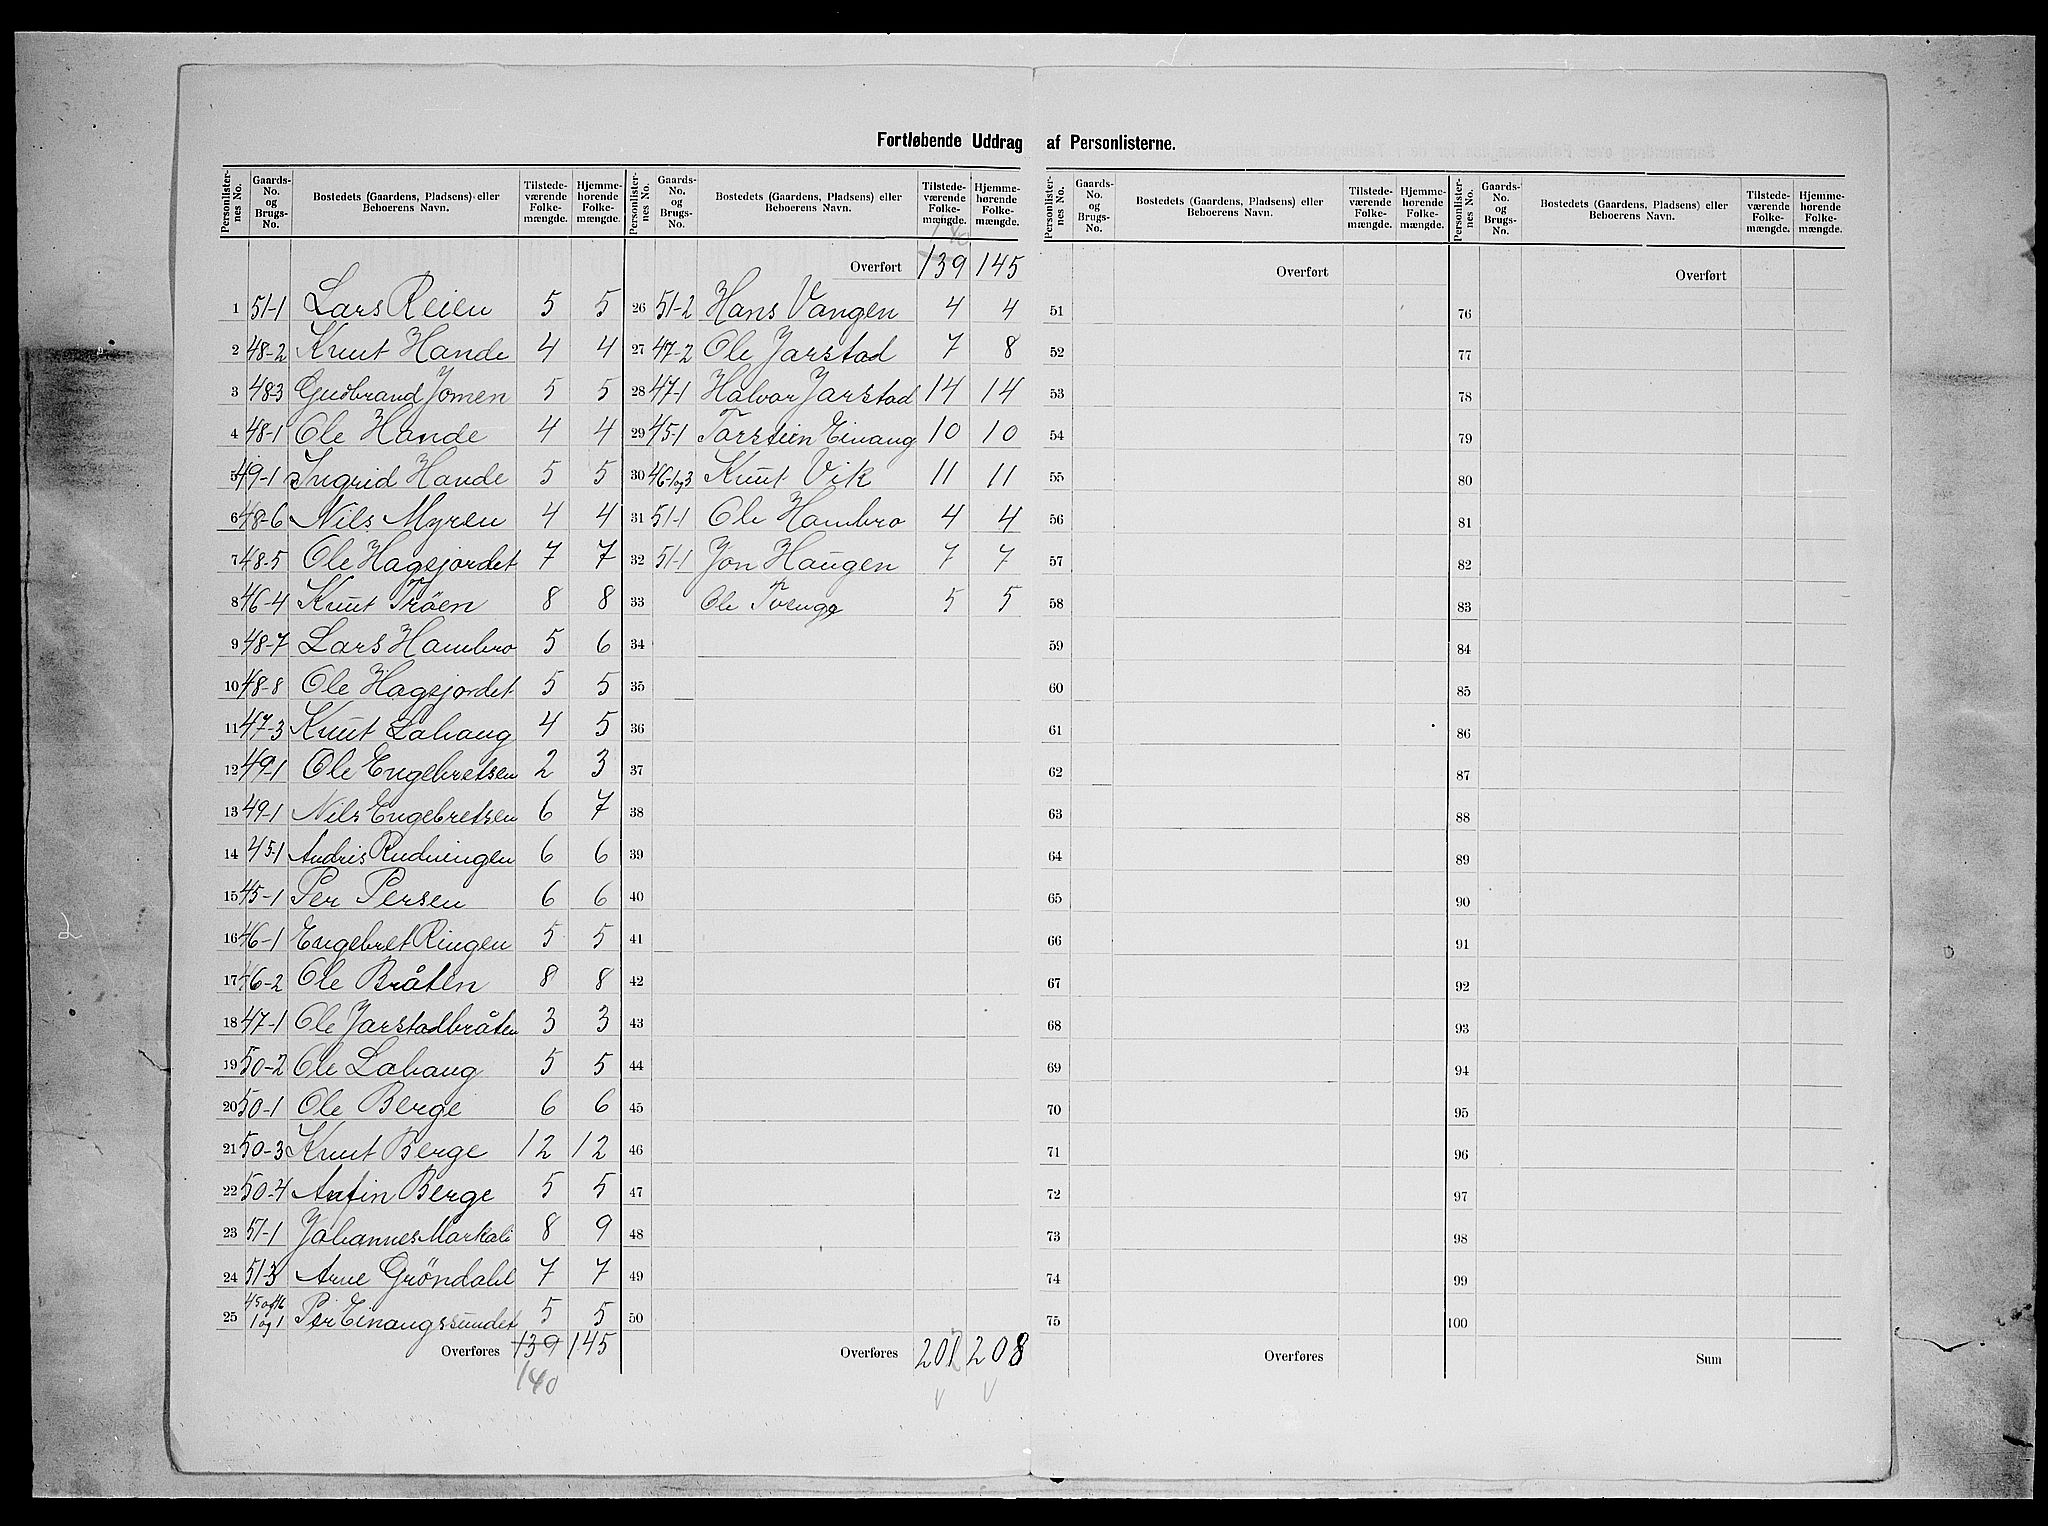 Fortløbende Uddrag af Personlisterne.
Personlister-nes No. Gaards-No. og Brugs-No. Bostedets (Gaardens, Pladsens) eller Beboerens Navn. Tilstede-værende Folke-mængde. Hjemme-hørende Folke-mængde.
1 51-1 Lars Reien 5 5
2 48-2 Knut Hande 4 4
3 48-3 Gudbrand Jomen 5 5
4 48-1 Ole Hande 4 4
5 49-1 Ingrid Hande 5 5
6 48-6 Nils Myren 4 4
7 48-5 Ole Hagejordet 7 7
8 46-4 Knut Trøen 8 8
9 48-7 Lars Hambro 5 6
10 48-8 Ole Hagejordet 5 5
11 47-3 Knut Lohaug 4 5
12 49-1 Ole Engebretsen 2 3
13 49-1 Nils Engebretsen 6 7
14 45-1 Andris Rudningen 6 6
15 45-1 Per Persen 6 6
16 46-1 Engebret Ringen 5 5
17 46-2 Ole Bråten 8 8
18 47-1 Ole Jarstadbråten 3 3
19 50-2 Ole Lohaug 5 5
20 50-1 Ole Berge 6 6
21 50-3 Knut Berge 12 12
22 50-4 Anfin Berge 5 5
23 51-1 Johannes Markali 8 9
24 51-3 Arne Grøndahl 7 7
25 45 og 46 1 og 1 Per Einangssundet 5 5
Overføres 139 145
140
Personlister-nes No. Gaards-No. og Brugs-No. Bostedets (Gaardens, Pladsens) eller Beboerens Navn. Tilstede-værende Folke-mængde. Hjemme-hørende Folke-mængde.
Overført 139 145
26 51-2 Hans Vangen 4 4
27 47-2 Ole Jarstad 7 8
28 47-1 Halvor Jarstad 14 14
29 45-1 Torstein Einang 10 10
30 46-1og3 Knut Vik 11 11
31 51-1 Ole Hambro 4 4
32 51-1 Jon Haugen 7 7
33 Ole Tvenge 5 5
34
35
36
37
38
39
40
41
42
43
44
45
46
47
48
49
50
Overføres 201 208
Personlister-nes No. Gaards-No. og Brugs-No. Bostedets (Gaardens, Pladsens) eller Beboerens Navn. Tilstede-værende Folke-mængde. Hjemme-hørende Folke-mængde.
Overført
51
52
53
54
55
56
57
58
59
60
61
62
63
64
65
66
67
68
69
70
71
72
73
74
75
Overføres
Personlister-nes No. Gaards-No. og Brugs-No. Bostedets (Gaardens, Pladsens) eller Beboerens Navn. Tilstede-værende Folke-mængde. Hjemme-hørende Folke-mængde.
Overført
76
77
78
79
80
81
82
83
84
85
86
87
88
89
90
91
92
93
94
95
96
97
98
99
100
Sum